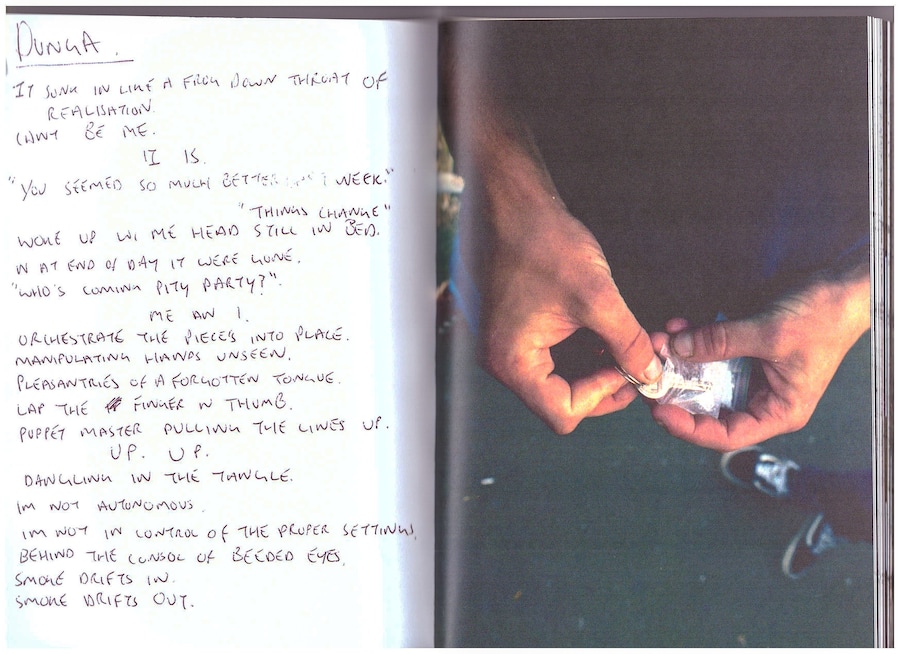 DUNGA.
IT SUNK IN LIKE A FROG DOWN THROAT OF
REALISATION.
CANT BE ME.
IT IS.
"YOU SEEMED SO MUCH BETTER LAST WEEK."
"THINGS CHANGE"
WOKE UP WI ME HEAD STILL IN BED.
N AT END OF DAY IT WERE GONE.
"WHO'S COMING PITY PARTY?".
ME AN I.
ORCHESTRATE THE PIECES INTO PLACE.
MANIPULATING HANDS UNSEEN.
PLEASANTRIES OF A FORGOTTEN TONGUE.
LAP THE FINGER N THUMB.
PUPPET MASTER PULLING THE LINES UP.
UP. UP.
DANGLING IN THE TANGLE.
IM NOT AUTONOMOUS.
IM NOT IN CONTROL OF THE PROPER SETTINGS,
BEHIND THE CONSOL OF BEEDED EYES.
SMOKE DRIFTS IN.
SMOKE DRIFTS OUT.